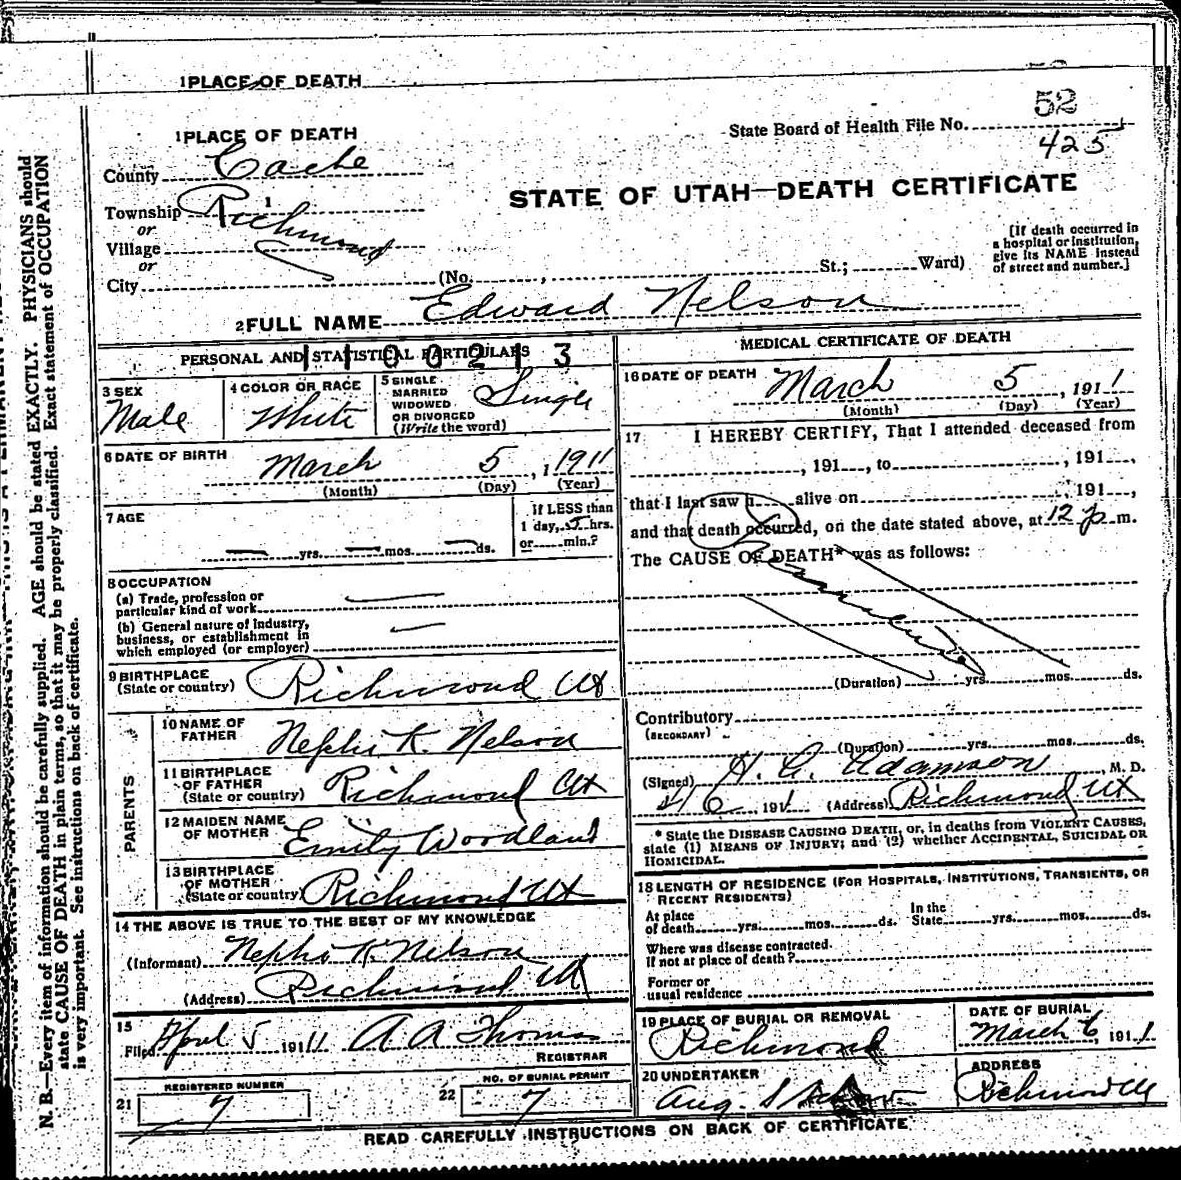 1 PLACE OF DEATH
1 PLACE OF DEATH
County Cache
Township Richmond
or
Village
or
City
State Board of Health File No. 52
425
STATE OF UTAH—DEATH CERTIFICATE
[If death occurred in
a hospital or institution,
give its NAME instead
of street and number.]
(No. , St.; Ward)
2 FULL NAME Edward Nelson
PERSONAL AND STATISTICAL PARTICULARS
1100213
3 SEX
Male
4 COLOR OR RACE
White
5 SINGLE
MARRIED
WIDOWED
OR DIVORCED
(Write the word)
Single
6 DATE OF BIRTH
March 5, 1911
(Month) (Day) (Year)
7 AGE
— yrs. — mos. — ds.
If LESS than
1 day, 5 hrs.
or min.?
8 OCCUPATION
(a) Trade, profession or
particular kind of work —
(b) General nature of Industry,
business, or establishment in
which employed (or employer) —
9 BIRTHPLACE
(State or country) Richmond Ut
PARENTS
10 NAME OF
FATHER Nephi K. Nelson
11 BIRTHPLACE
OF FATHER
(State or country) Richmond Ut
12 MAIDEN NAME
OF MOTHER Emily Woodland
13 BIRTHPLACE
OF MOTHER
(State or country) Richmond Ut
14 THE ABOVE IS TRUE TO THE BEST OF MY KNOWLEDGE
(Informant) Nephi K. Nelson
(Address) Richmond Ut
15
Filed April 5 1911 A A Thomas
REGISTRAR
REGISTERED NUMBER
21 7
NO. OF BURIAL PERMIT
22 7
MEDICAL CERTIFICATE OF DEATH
16 DATE OF DEATH March 5, 1911
(Month) (Day) (Year)
17 I HEREBY CERTIFY, That I attended deceased from
, 191 , to , 191 ,
that I last saw h alive on , 191 ,
and that death occurred, on the date stated above, at 12 p m.
The CAUSE OF DEATH* was as follows:
(Duration) yrs. mos. ds.
Contributory
(SECONDARY)
(Duration) yrs. mos. ds.
(Signed) Adamson, M. D.
6 1911 (Address) Richmond Ut
* State the DISEASE CAUSING DEATH, or, in deaths from VIOLENT CAUSES,
state (1) MEANS OF INJURY; and (2) whether ACCIDENTAL, SUICIDAL OR
HOMICIDAL.
18 LENGTH OF RESIDENCE (FOR HOSPITALS, INSTITUTIONS, TRANSIENTS, OR
RECENT RESIDENTS)
At place
of death yrs. mos. ds. In the
State yrs. mos. ds.
Where was disease contracted
if not at place of death?
Former or
usual residence
19 PLACE OF BURIAL OR REMOVAL
Richmond
DATE OF BURIAL
March 6, 1911
20 UNDERTAKER
Aug. S
ADDRESS
Richmond Ut
READ CAREFULLY INSTRUCTIONS ON BACK OF CERTIFICATE
N. B.—Every item of information should be carefully supplied. AGE should be stated EXACTLY. PHYSICIANS should
state CAUSE OF DEATH in plain terms, so that it may be properly classified. Exact statement of OCCUPATION
is very important. See instructions on back of certificate.